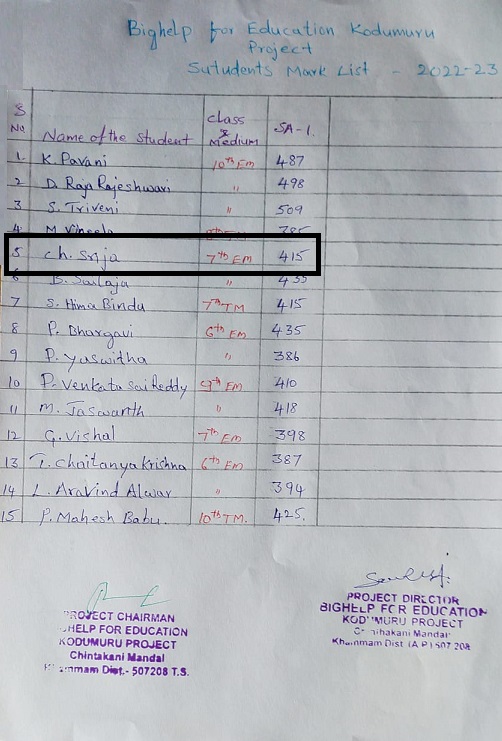 Bighelp for Education Kodumuru
Project
Sutudents Mark List - 2022-23
S No Name of the Student Class & Medium SA-1.
1. K. Pavani 10th EM 487
2 D. Raja Rajeshwari " 498
3 S. Triveni " 509
4 M
5 Ch. Srija 7th EM 415
6 B. Sailaja " 435
7 S. Hima Bindu 7th TM 415
8 P. Bhargavi 6th EM 435
9 P. Yaswitha " 386
10 P. Venkata Sai Reddy 9th EM 410
11 M. Jaswanth " 418
12 G. Vishal 7th EM 398
13 T. Chaitanya Krishna 6th EM 387
14 L. Aravind Alwar " 394
15 P. Mahesh Babu. 10th TM. 425.
PROJECT CHAIRMAN
HELP FOR EDUCATION
KODUMURU PROJECT
Chintakani Mandal
Dist.- 507208 T.S.
PROJECT DIRECTOR
BIGHELP FOR EDUCATION
KODUMURU PROJECT
Mandal
Khammam Dist (A.P) 507 208